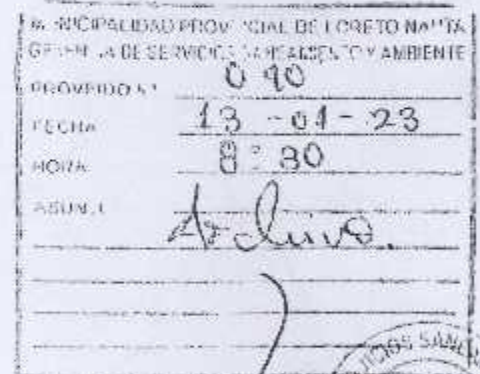 MUNICIPALIDAD PROVINCIAL DE LORETO NAUTA
GERENCIA DE SERVICIOS SANEAMIENTO Y AMBIENTE
PROVEIDO N° 090
FECHA 13-01-23
HORA 8:30
ASUNTO Archivo.